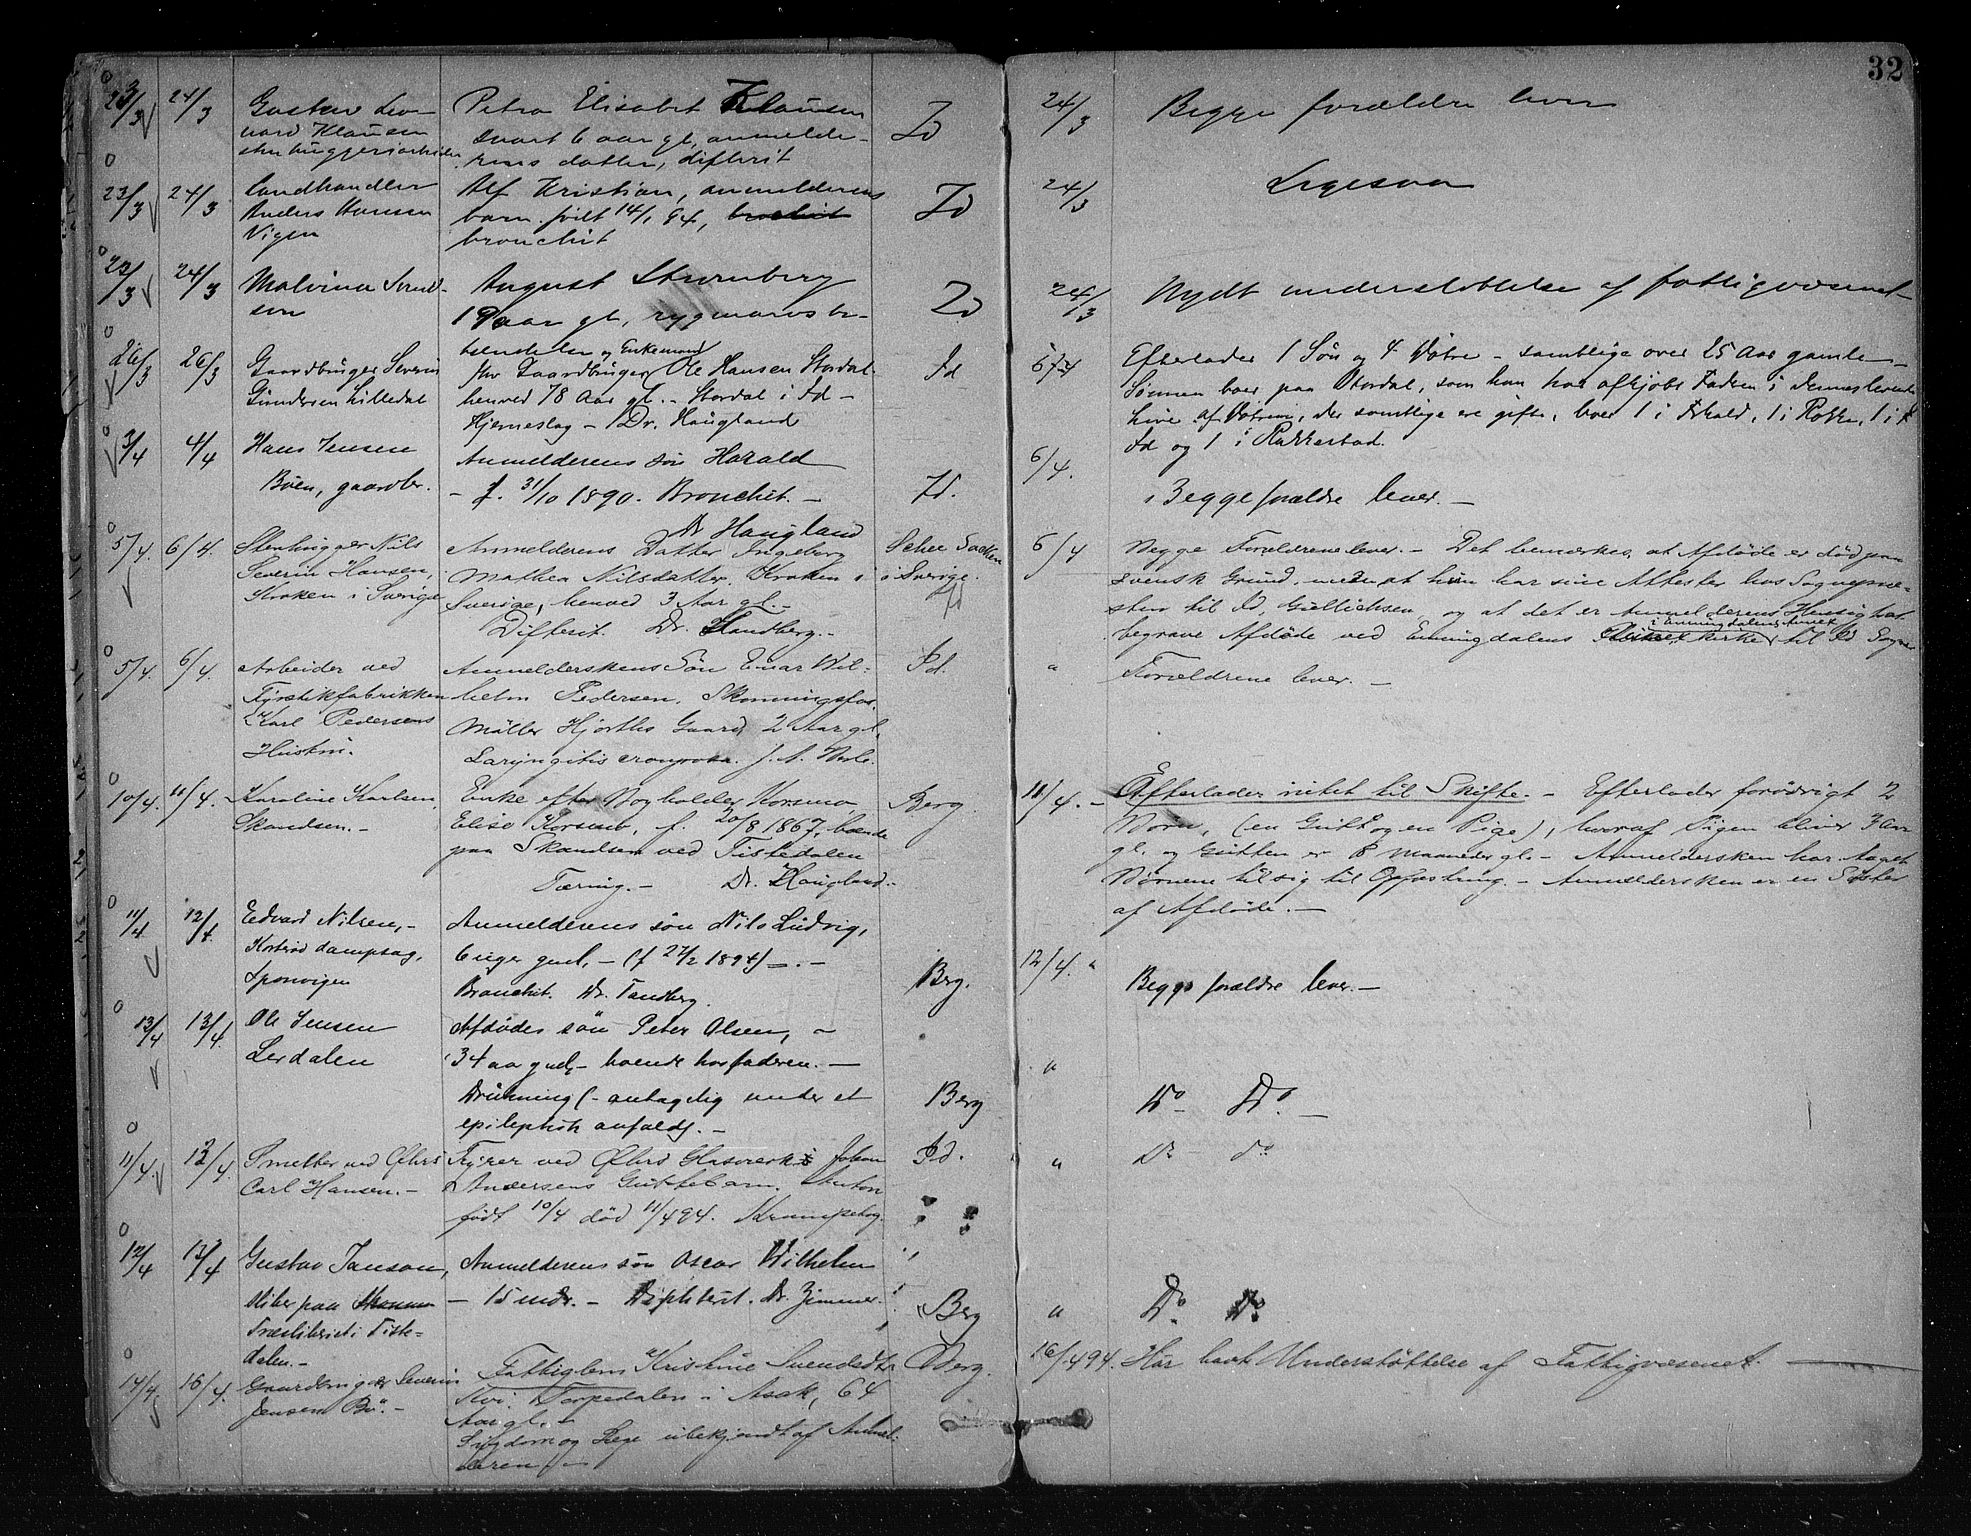 32
23/3 24/3 Gustav Leo-
nard Klausen
stenhuggeriarbeider
Petra Elisabet Klausen
svart 6 aar gl, anmelde-
rens datter, difterit
Id
24/3 Begge forældre lever
23/3 24/3 Landhandler
Anders Hansen
Vigen
Alf Kristian, anmelderens
barn født 14/1 94,
bronchit
Id
24/3 Ligesaa
23/3 24/3 Malvina Svend-
sen
August Strømberg
19 aar gl, rygmarvsbe-
tændelse
Id
24/3 Nydt understøttelse af fattigvæsenet
26/3 26/3 Gaardbruger Severin
Gundersen Lilledal
og Enkemand
fhv Gaardbruger Ole Hansen Stordal
henved 78 Aar gl. - Stordal i Id -
Hjerneslag - Dr. Haugland
Id
6/4 Efterlader 1 Søn og 4 Døtre - samtlige over 25 Aar gamle -
Sønnen boer paa Stordal, som han har afkjøbt Faderen i dennes levende
live. af Døtrene, der samtlige ere gifte, boer 1 i Fr.hald, 1 i Rokke, 1 i
Id og 1 i Rakkestad.
3/4 4/4 Hans Jensen
Bøen, gaardbr.
Anmelderens søn Harald
- f. 31/10 1890. Bronchit. -
Dr Haugland
Id.
6/4. Begge forældre lever. -
5/4. 6/4. Stenhugger Nils
Severin Hansen,
Kroken i Sverige
Anmelderens Datter Ingeborg
Mathea Nilsdatter. Kroken i
Sverige, henved 3 Aar gl. -
Difterit. Dr. Tandberg. -
i Sverige.
Id
6/4 Begge Forældrene lever. - Det bemærkes, at Afdøde er død paa
svensk Grund, men at hun har sine Attester hos Sognepræ-
sten til Id, Gullichsen, og at det er Anmelderens Hensigt at
i Enningdalens Annex
begrave Afdøde ved Enningdalens kirke til Id Sogn
5/4. 6/4. Arbeider ved
Fyrstikfabrikken
Karl Pedersens
Hustru.
Anmelderskens Søn Einar Wil-
helm Pedersen. Skonningsfos.
Møller Hjorths Gaard, 2 Aar gl.
Laryngitis crouposa.
Id.
" Forældrene lever. -
10/4. 11/4. Karoline Karlsen,
Skandsen. -
Enke efter Bogholder Korsmo
Elise Korsmo, f. 20/8 1867, boende
paa Skandsen ved Tistedalen
Tæring. - Dr. Haugland. -
Berg
11/4. - Efterlader intet til Skifte. - Efterlader forøvrigt 2
Børn, (en Gut og en Pige), hvoraf Pigen bliver 3 Aar
gl. og Gutten er 8 Maaneder gl. - Anmeldersken har taget
Børnene til sig til Opfostring. - Anmeldersken er en Søster
af Afdøde. -
11/4 12/4 Edvard Nilsen, -
dampsag,
Sponvigen
Anmelderens søn Nils Ludvig,
6 uger gml, - (f 27/2 1894) -. -
Bronchit. Dr. Tandberg.
Berg.
12/4. " Begge forældre lever. -
13/4 13/4. Ole Jensen
Lerdalen
Afdødes søn Peter Olsen, -
34 aar gml, - boende hos faderen. -
Drukning (- antagelig under et
epileptisk anfald). -
Berg
" Do Do. -
11/4. 12/4. Smelter ved
Carl Hansen. -
Fyrer ved Glasverk Johan
Andersens Guttebarn. Anton
født 10/4 død 11/4 94. Krampetog.
Id.
" Do do
12/4 13/4 Gustav Janson,
sliber paa
Træsliberiet i Tiste-
dalen. -
Anmelderens søn Oscar Wilhelm
- 15 mdr. - Diphterit. Dr. Zimmer.
Berg
" Do. Do.
14/4 16/4. Gaardbruger Severin
Jensen Bø. -
Fattiglem Kristine Svendsdtr
Torpedalen i Asak, 64
Aar gl. -
Sygdom og Læge ubekjendt af Anmel-
deren. -
Berg.
16/4 94. Har havt Understøttelse af Fattigvæsenet. -